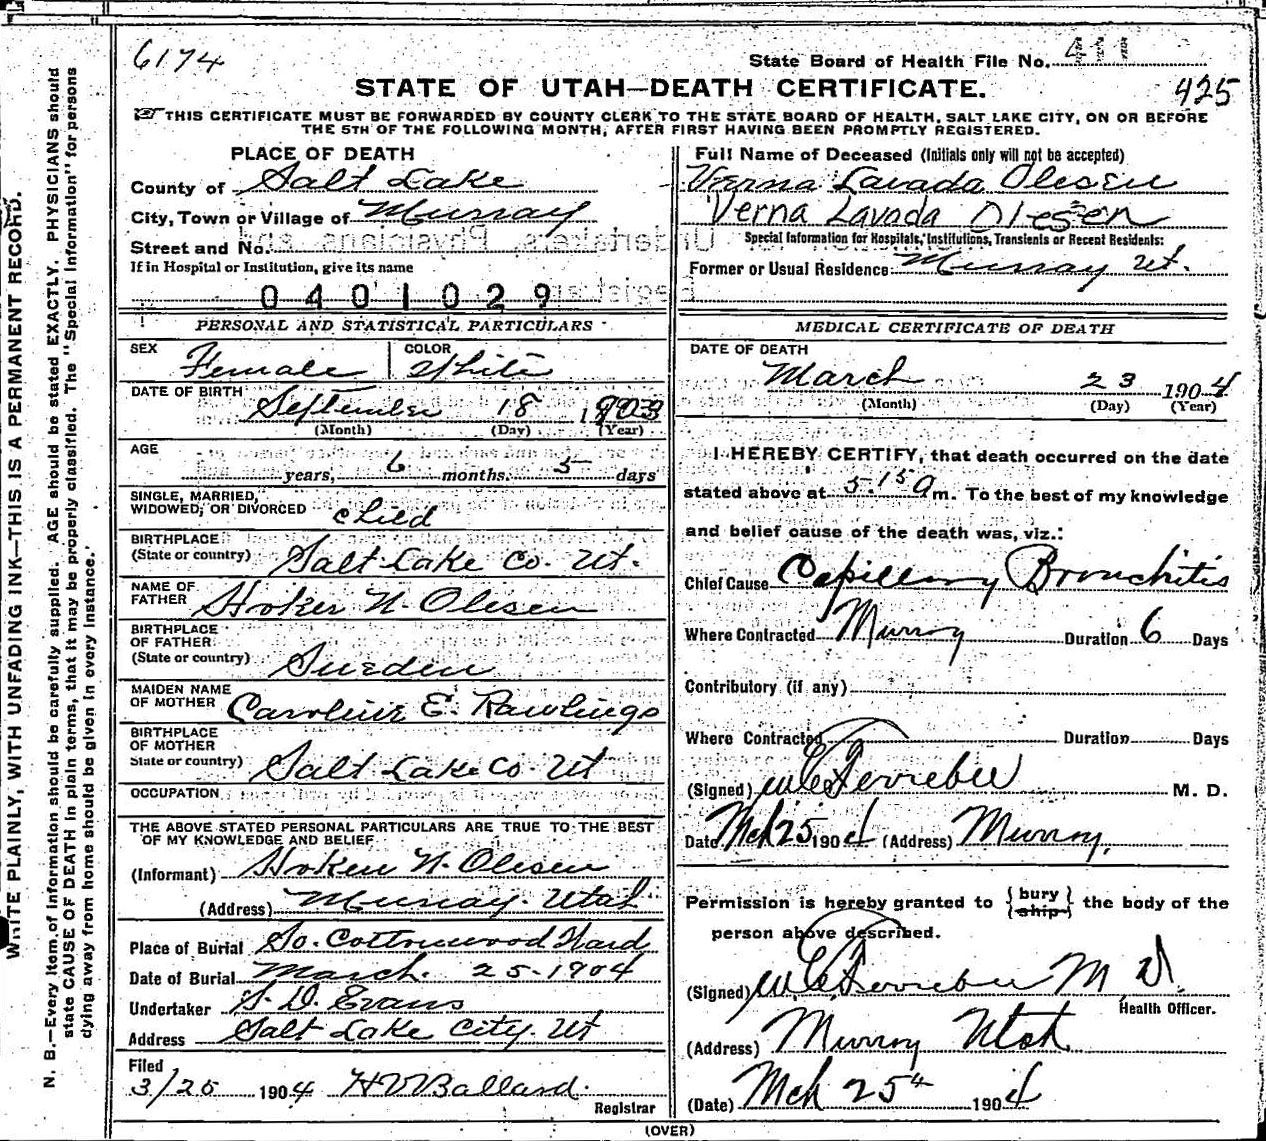 6174
State Board of Health File No. 411
STATE OF UTAH—DEATH CERTIFICATE.
425
THIS CERTIFICATE MUST BE FORWARDED BY COUNTY CLERK TO THE STATE BOARD OF HEALTH, SALT LAKE CITY, ON OR BEFORE
THE 5TH OF THE FOLLOWING MONTH, AFTER FIRST HAVING BEEN PROMPTLY REGISTERED.
PLACE OF DEATH
County of Salt Lake
City, Town or Village of Murray
Street and No.
If in Hospital or Institution, give its name
0401029
PERSONAL AND STATISTICAL PARTICULARS
SEX Female COLOR White
DATE OF BIRTH September 18 1903
(Month) (Day) (Year)
AGE
years, 6 months. 5 days
SINGLE, MARRIED,
WIDOWED, OR DIVORCED child
BIRTHPLACE
(State or country) Salt Lake Co. Ut.
NAME OF
FATHER Hoken N. Olesen
BIRTHPLACE
OF FATHER
(State or country) Sweden
MAIDEN NAME
OF MOTHER Caroline E. Rawlings
BIRTHPLACE
OF MOTHER
State or country) Salt Lake Co. Ut
OCCUPATION
THE ABOVE STATED PERSONAL PARTICULARS ARE TRUE TO THE BEST
OF MY KNOWLEDGE AND BELIEF
(Informant) Hoken N. Olesen
(Address) Murray. Utah
Place of Burial So. Cottonwood Ward
Date of Burial March. 25-1904
Undertaker S. D. Evans
Address Salt Lake City. Ut
Filed
3/25 1904 H V Ballard.
Registrar
Full Name of Deceased (Initials only will not be accepted)
Verna Lavada Olesen
Verna Lavada Olesen
Special Information for Hospitals, Institutions, Transients or Recent Residents:
Former or Usual Residence: Murray Ut.
MEDICAL CERTIFICATE OF DEATH
DATE OF DEATH
March 23 1904
(Month) (Day) (Year)
I HEREBY CERTIFY, that death occurred on the date
stated above at 5.15 a m. To the best of my knowledge
and belief cause of the death was, viz.:
Chief Cause Capillary Bronchitis
Where Contracted Murray Duration 6 Days
Contributory (if any)
Where Contracted Duration Days
(Signed) W C Ferrebee M. D.
Date Mch 25 1904 (Address) Murray.
Permission is hereby granted to { bury
ship } the body of the
person above described.
(Signed) W C Ferrebee M D.
Health Officer.
(Address) Murray Utah
(Date) Mch 25th 1904
(OVER)
WRITE PLAINLY, WITH UNFADING INK—THIS IS A PERMANENT RECORD.
N. B.—Every item of information should be carefully supplied. AGE should be stated EXACTLY. PHYSICIANS should
state CAUSE OF DEATH in plain terms, that it may be properly classified. The "Special Information" for persons
dying away from home should be given in every instance.